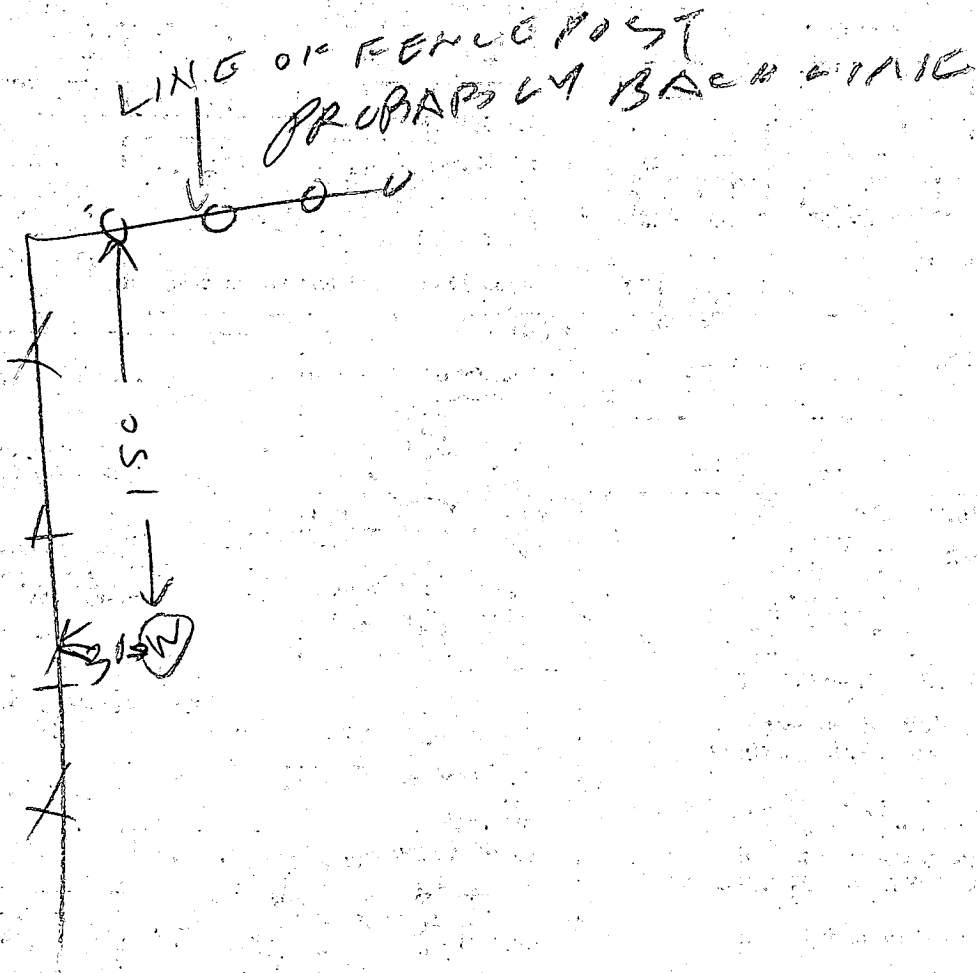 LINE OF FENCE POST
PROBABLY BACK LINE
150
W